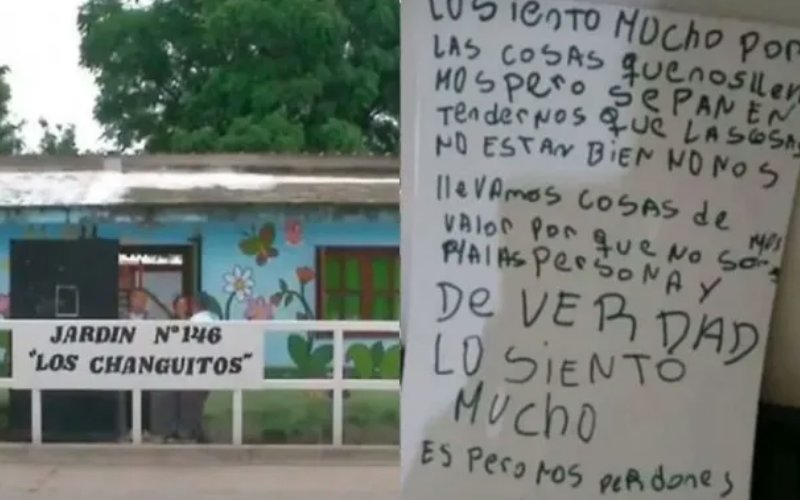 JARDIN Nº 146
"LOS CHANGUITOS"
LO SIENTO MUCHO POR
LAS COSAS que nos llev
MOS Pero SEPAN EN
TenderNos QUE LAS COSAS
NO ESTAN BIEN NO NOS
llevAmos COSAS de
VALOR POR QUE NO SOMOS
MALAS PersoNA Y
De VERDAD
LO SIENTO
MUCHO
ES Pero NOS Perdones